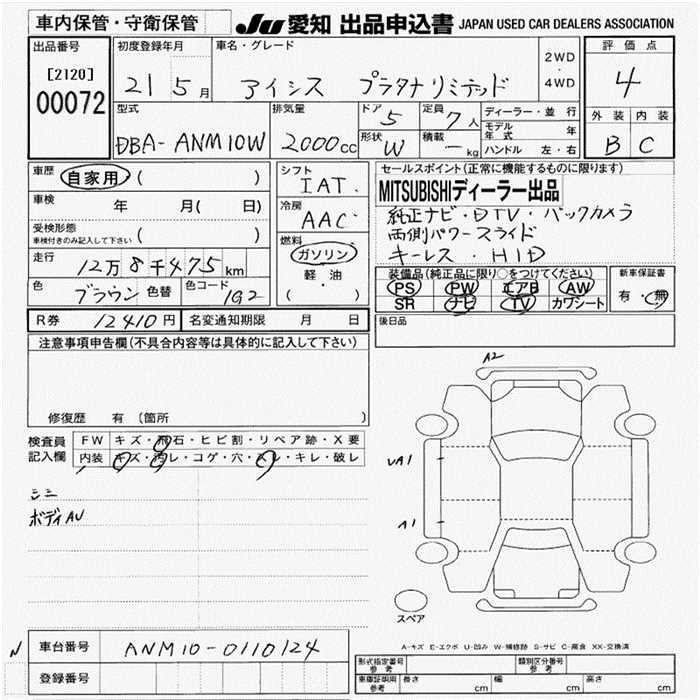 車内保管・守衛保管
JU 愛知 出品申込書 JAPAN USED CAR DEALERS ASSOCIATION
出品番号 初度登録年月 車名・グレード 評価点
[2120] 21 5月 アイシス プラタナリミテッド 2WD・4WD 4
00072 型式 排気量 ドア 5 定員 7人 ディーラー・並行 外装 内装
DBA-ANM10W 2000cc 形状 W 積載 - kg モデル年式 年 B C
ハンドル 左・右
車歴 自家用 ( ) シフト IAT. セールスポイント(正常に機能するものに限ります)
車検 年 月( 日) 冷房 AAC MITSUBISHIディーラー出品
受検形態 車検付きのみ記入して下さい ( ) 純正ナビ・DTV・バックカメラ
燃料 ガソリン 両側パワースライド
走行 12万8千475km 軽・油 キーレス・HID
色 ブラウン 色替 色コード 1G2 ( ) 装備品(純正品に限り○をつけてください) 新車保証書
PS PW エアB AW 有・無
SR ナビ TV カワシート
R券 12410円 名変通知期限 月 日 後日品
注意事項申告欄(不具合内容等は具体的に記入して下さい)
修復歴 有(箇所
検査員記入欄 FW キズ・飛石・ヒビ割・リペア跡・X要
内装 キズ・汚レ・コゲ・穴・スレ・キレ・破レ
シミ
ボディAU
A2
UA1
A1
スペア
A-キズ E-エクボ U-凹み W-補修跡 S-サビ C-腐食 XX-交換済
N 車台番号 ANM10-0110124
登録番号
形式指定番号 参考 類別区分番号 参考
車庫証明用 参考 長さ cm 幅 cm 高さ cm